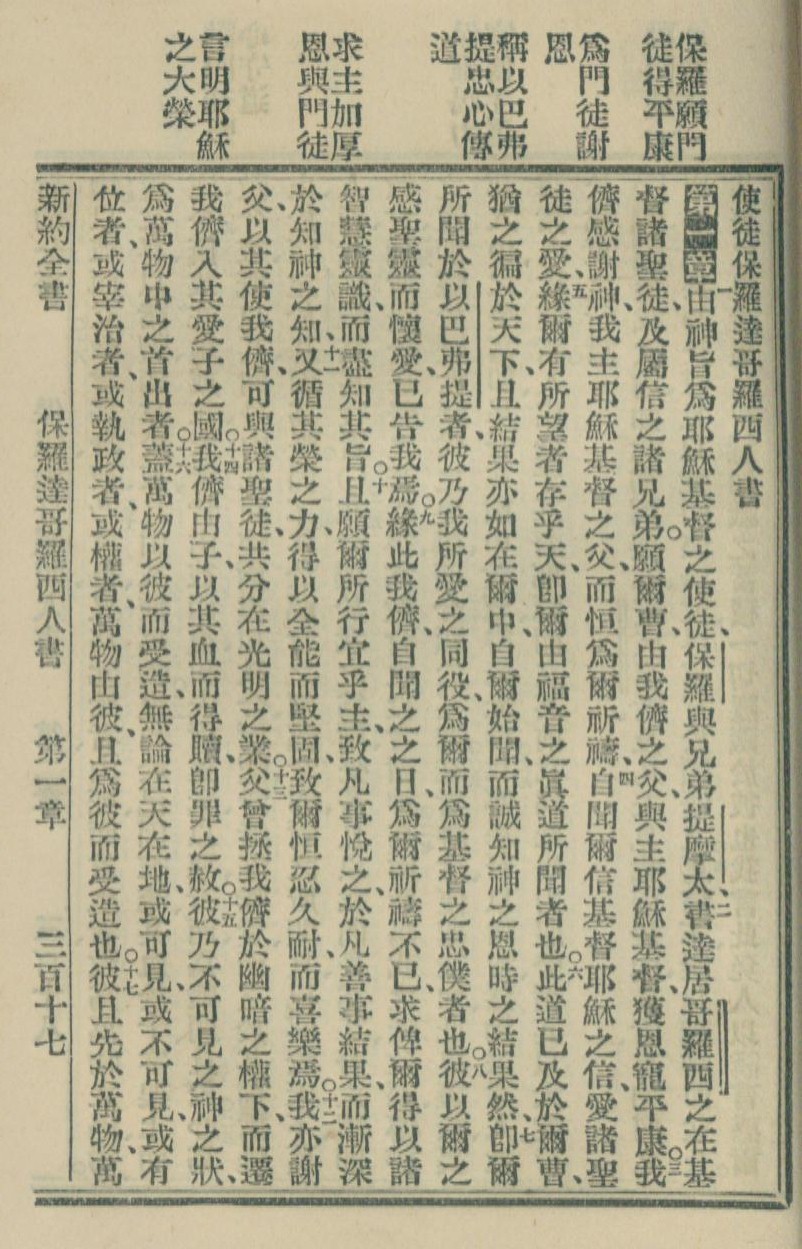 保羅願門
徒得平康
爲門徒謝
恩
稱以巴弗
提忠心傳
道
求主加厚
恩與門徒
言明耶穌
之大榮
使徒保羅達哥羅西人書
第一章一由神旨爲耶穌基督之使徒、保羅與兄弟提摩太、二書達居哥羅西之在基
督諸聖徒、及屬信之諸兄弟。願爾曹、由我儕之父、與主耶穌基督、獲恩寵平康。三我
儕感謝神、我主耶穌基督之父、而恒爲爾祈禱、四自聞爾信基督耶穌之信、愛諸聖
徒之愛、五緣爾有所望者存乎天、卽爾由福音之眞道所聞者也。六此道已及於爾曹、
猶之徧於天下、且結果亦如在爾中、自爾始聞、而誠知神之恩時之結果然、七卽爾
所聞於以巴弗提者、彼乃我所愛之同役、爲爾而爲基督之忠僕者也。八彼以爾之
感聖靈而懷愛、已告我焉。九緣此我儕、自聞之之日、爲爾祈禱不已、求俾爾得以諸
智慧靈識、而盡知其旨。十且願爾所行宜乎主、致凡事悅之、於凡善事結果、而漸深
於知神之知、十一又循其榮之力、得以全能而堅固、致爾恒忍久耐、而喜樂焉。十二我亦謝
父、以其使我儕、可與諸聖徒、共分在光明之業。十三父曾拯我儕於幽暗之權下、而遷
我儕入其愛子之國。十四我儕由子、以其血而得贖、卽罪之赦。十五彼乃不可見之神之狀、
爲萬物中之首出者。十六蓋萬物以彼而受造、無論在天在地、或可見、或不可見、或有
位者、或宰治者、或執政者、或權者、萬物由彼、且爲彼而受造也。十七彼且先於萬物、萬
新約全書 保羅達哥羅西人書 第一章 三百十七